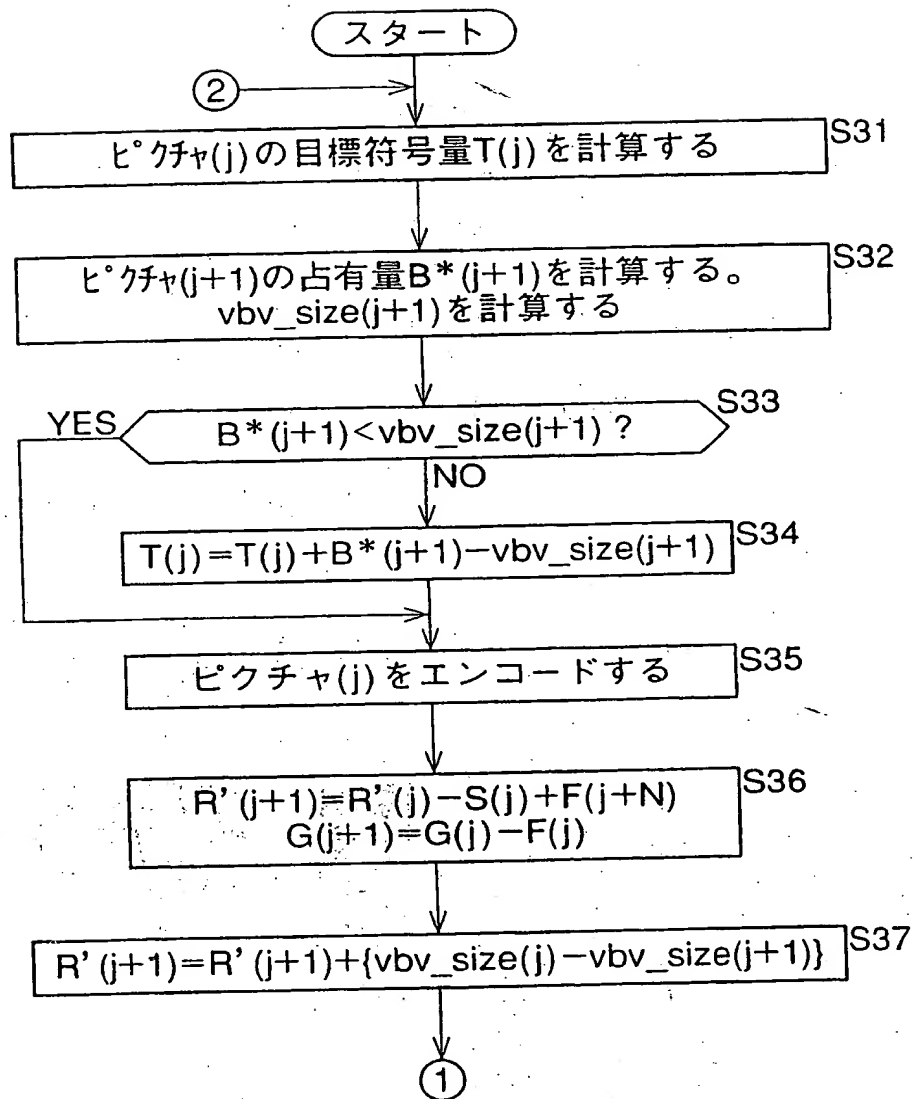 スタート
②
S31
ピクチャ(j)の目標符号量T(j)を計算する
S32
ピクチャ(j+1)の占有量B*(j+1)を計算する。
vbv_size(j+1)を計算する
S33
YES
B*(j+1)<vbv_size(j+1)?
NO
S34
T(j)=T(j)+B*(j+1)−vbv_size(j+1)
S35
ピクチャ(j)をエンコードする
S36
R'(j+1)=R'(j)−S(j)+F(j+N)
G(j+1)=G(j)−F(j)
S37
R'(j+1)=R'(j+1)+{vbv_size(j)−vbv_size(j+1)}
①